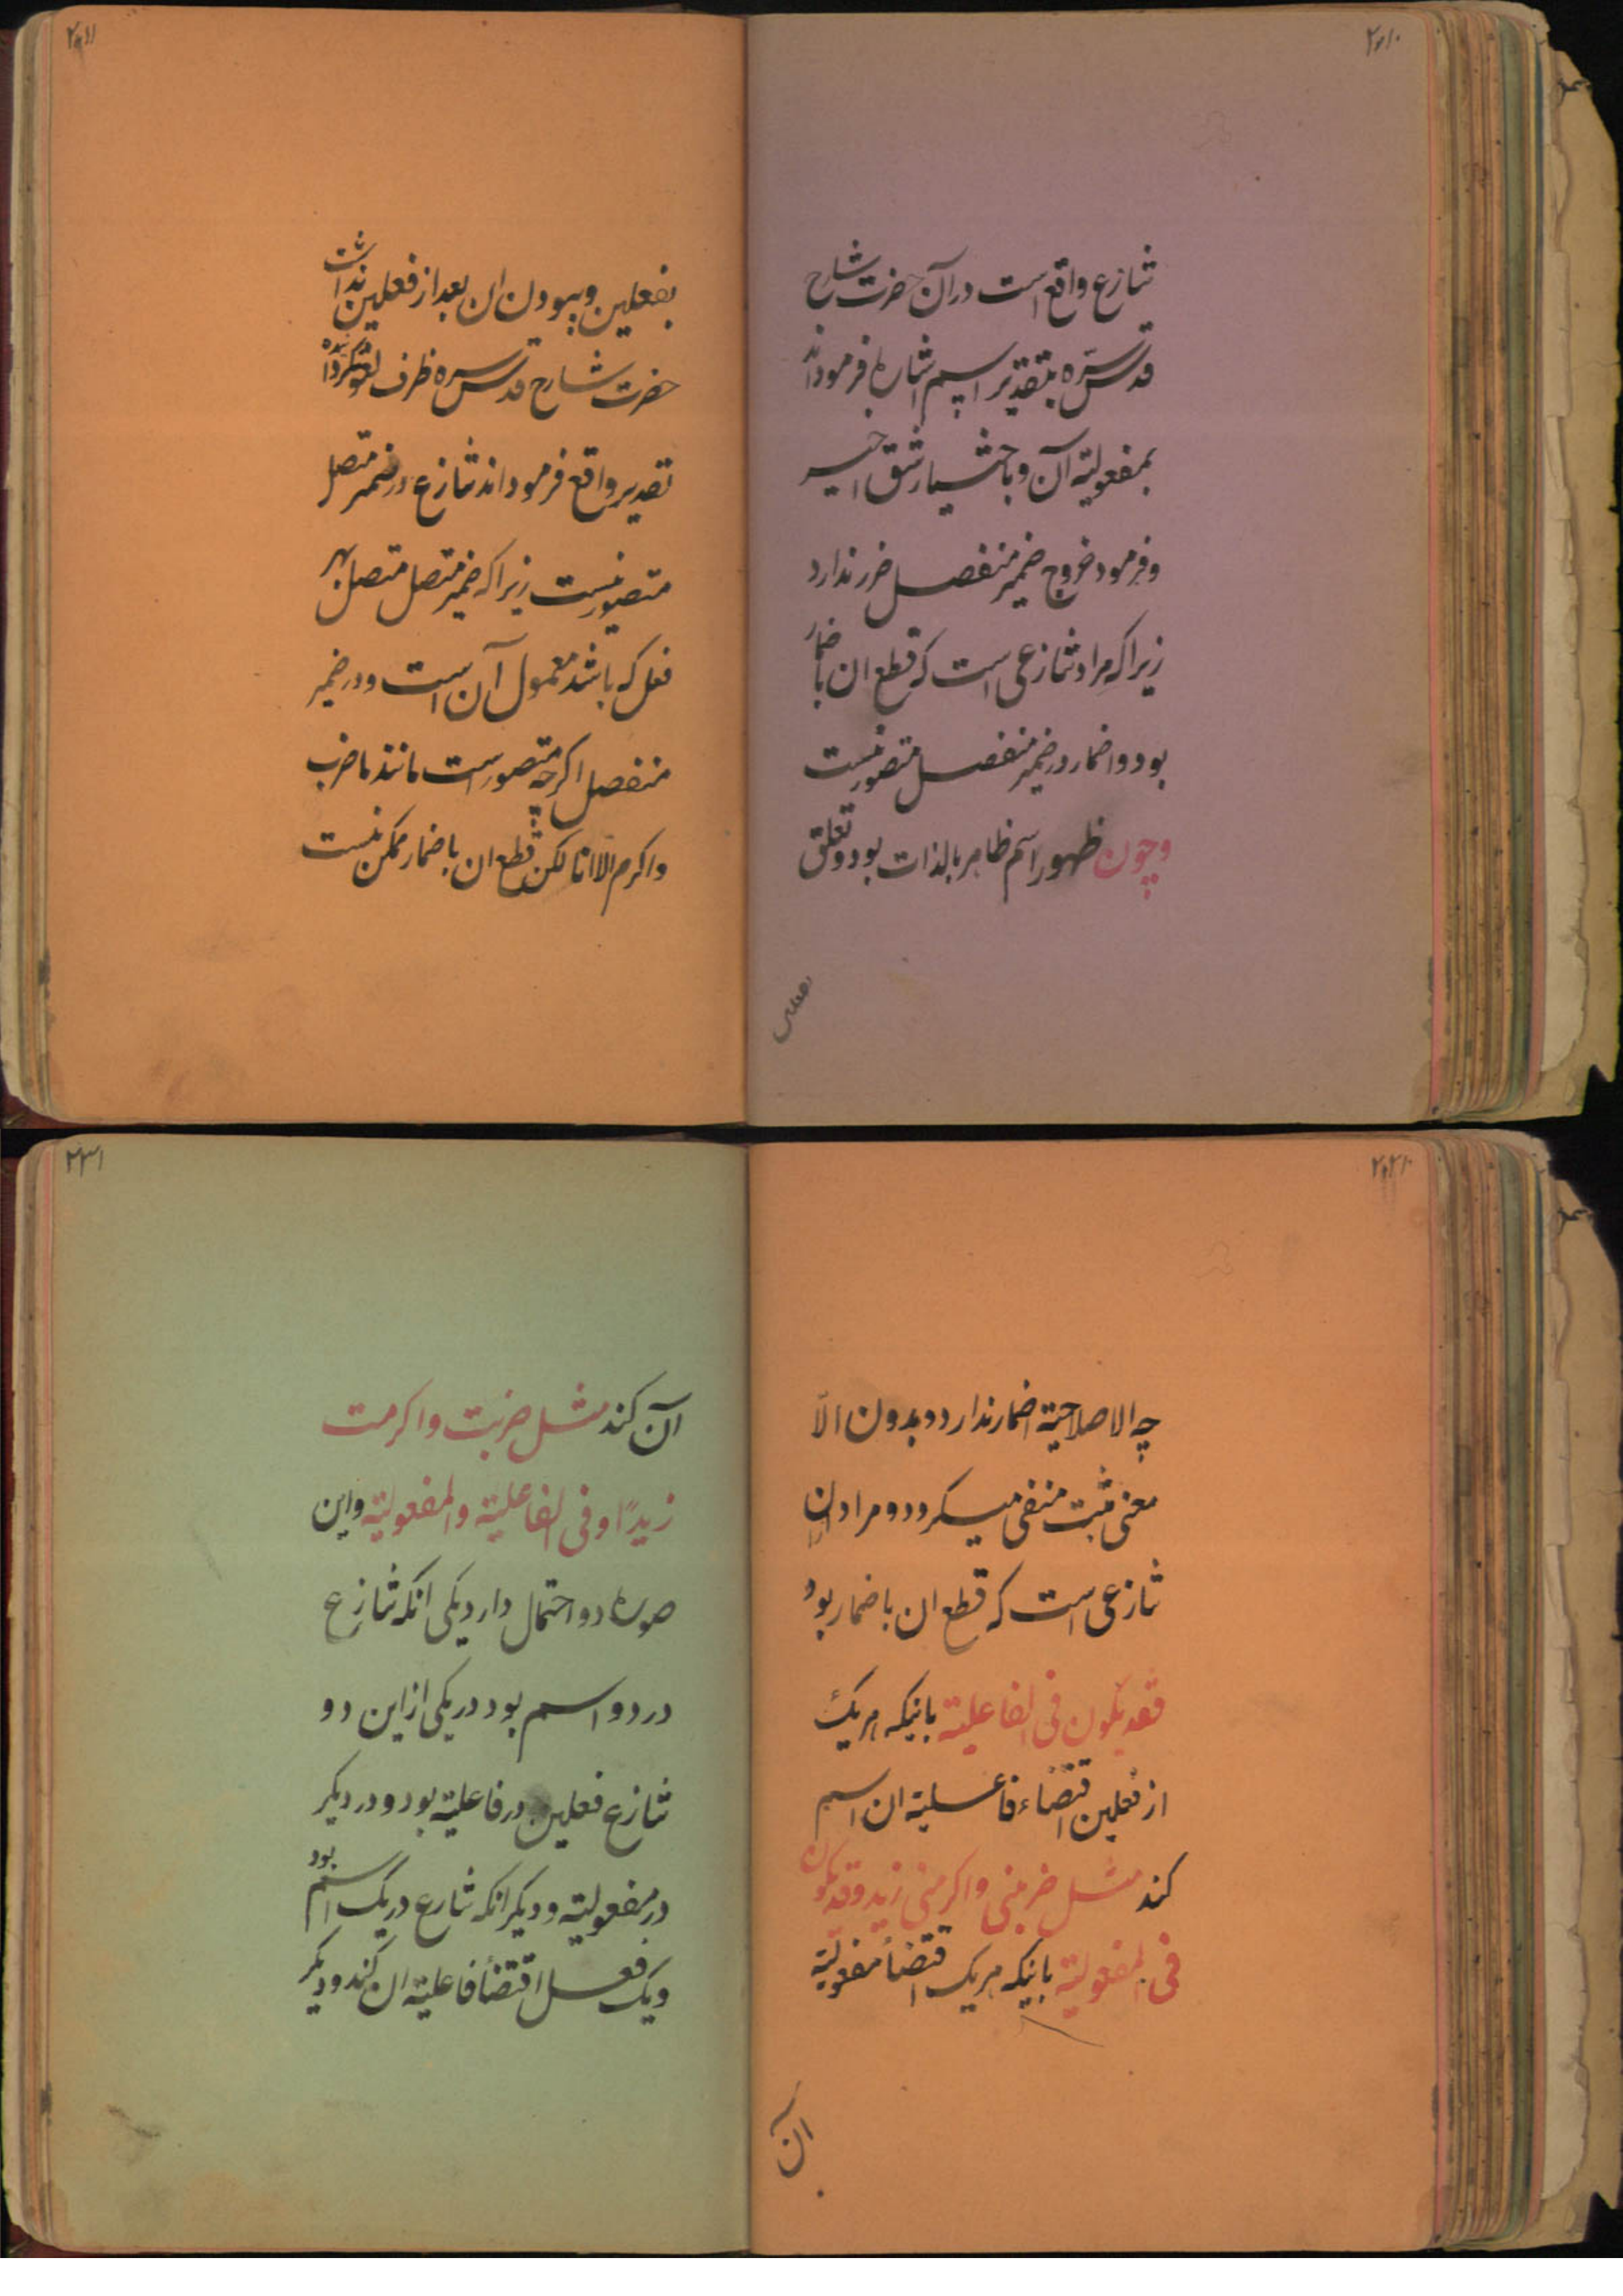 تنازع واقع است در آن حضرت شارح
قدس سرّه بتقدیر اسم اشاره فرموداند
بمفعولیته آن و باختیار شق اخیر
و فرمود خروج ضمیر منفصل ضرر ندارد
زیرا که مراد تنازعی است که قطع ان باضمار
بود و اضمار در ضمیر منفصل متصور نیست
و چون ظهور اسم ظاهر بالذات بود و تعلق
بفعلین
۲۱۱
بفعلین و ببودن ان بعد از فعلین نداشت
حضرت شارح قدس سره ظرف لغو
تقدیر واقع فرموداند تنازع در ضمیر متصل
متصور نیست زیرا که ضمیر متصل متصل بهر
فعل که باشد معمول آن است و در ضمیر
منفصل اکرچه متصور است مانند ما ضرب
و اکرم الّا انا لکن قطع ان باضمار ممکن نیست
چه الا صلاحیة اضمار ندارد و بدون الّا
معنی مثبت منفی میکردد و مراد ان
تنازعی است که قطع ان باضمار بود
فقد یکون فی الفاعلیة باینکه هر یک
از فعلین اقتضاء فاعلیة ان اسم
کند مثل ضربنی و اکرمنی زید و قد یکون
فی المفعولیة باینکه هر یک اقتضاء مفعولیة
آن
۲۳۱
آن کند مثل ضربت و اکرمت
زیدًا و فی الفاعلیة والمفعولیة و این
صوره دو احتمال دارد یکی انکه تنازع
در دو اسم بود در یکی از این دو
تنازع فعلین در فاعلیة بود و در دیکر
در مفعولیة و دیکر انکه تنازع در یک اسم بود
و یک فعل اقتضاء فاعلیة ان کند و دیکر